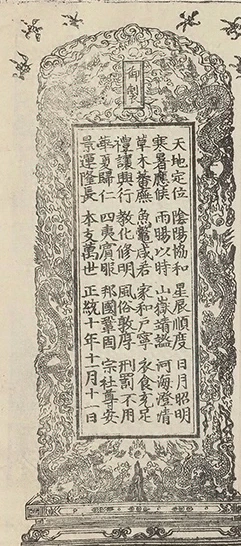 御製
天地定位　陰陽協和　星辰順度　日月昭明
寒暑應候　雨暘以時　山嶽靖謐　河海澄清
草木蕃廡　魚鼈咸若　家和戶寧　衣食充足
禮讓興行　教化修明　風俗敦厚　刑罰不用
華夏歸仁　四夷賓服　邦國鞏固　宗社尊安
景運隆長　本支萬世　正統十年十一月十一日